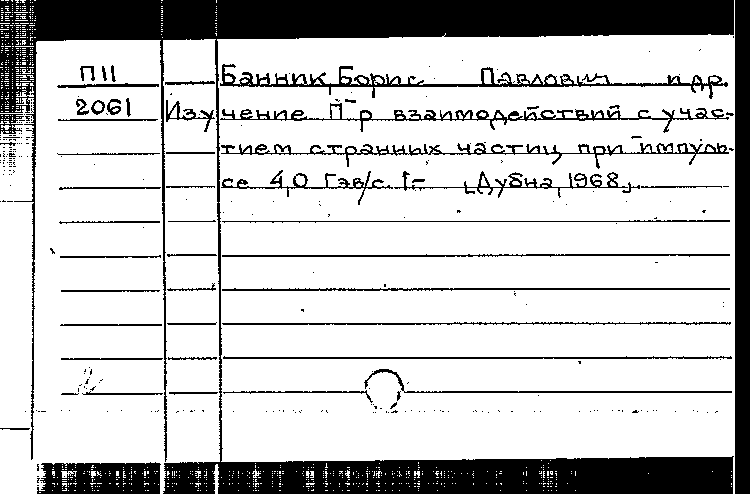 П11 Банник, Борис Павлович и др.
2061 Изучение П⁻р взаимодействий с учас-
тием странных частиц при импуль-
се 4,0 Гэв/с. [Дубна, 1968].